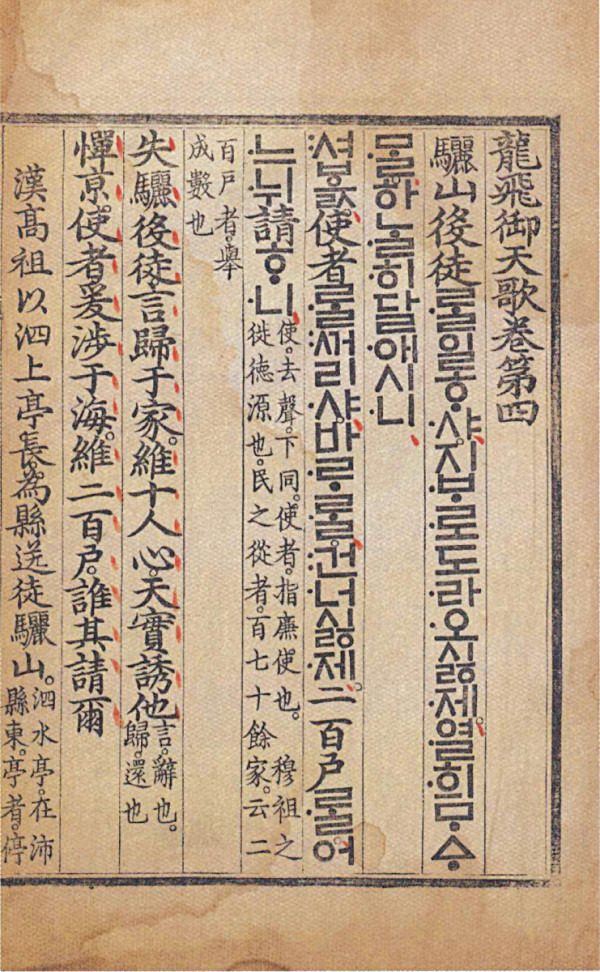 龍飛御天歌卷第四
驪山後徒ᄅᆞᆯ일ᄒᆞ샤지ᄇᆞ로도라오싫제열희ᄆᆞᅀᆞ
ᄆᆞᆯ하ᄂᆞᆯ히달애시니
셔ᄫᅳᆳ使者ᄅᆞᆯ ᄭᅥ리샤바ᄅᆞᄅᆞᆯ건너싫제二百戶ᄅᆞᆯ어
느뉘請ᄒᆞ니
使。去聲。下同。使者。指廉使也。 穆祖之
徙德源也。民之從者。百七十餘家。云二
百戶者。擧
成數也
失驪後徒言歸于家。維十人心。天實誘他
言。辭也。
歸。還也
憚京使者爰涉于海。維二百戶。誰其請爾
漢高祖以泗上亭長。爲縣送徒驪山。
泗水亭。在沛
縣東。亭者。停